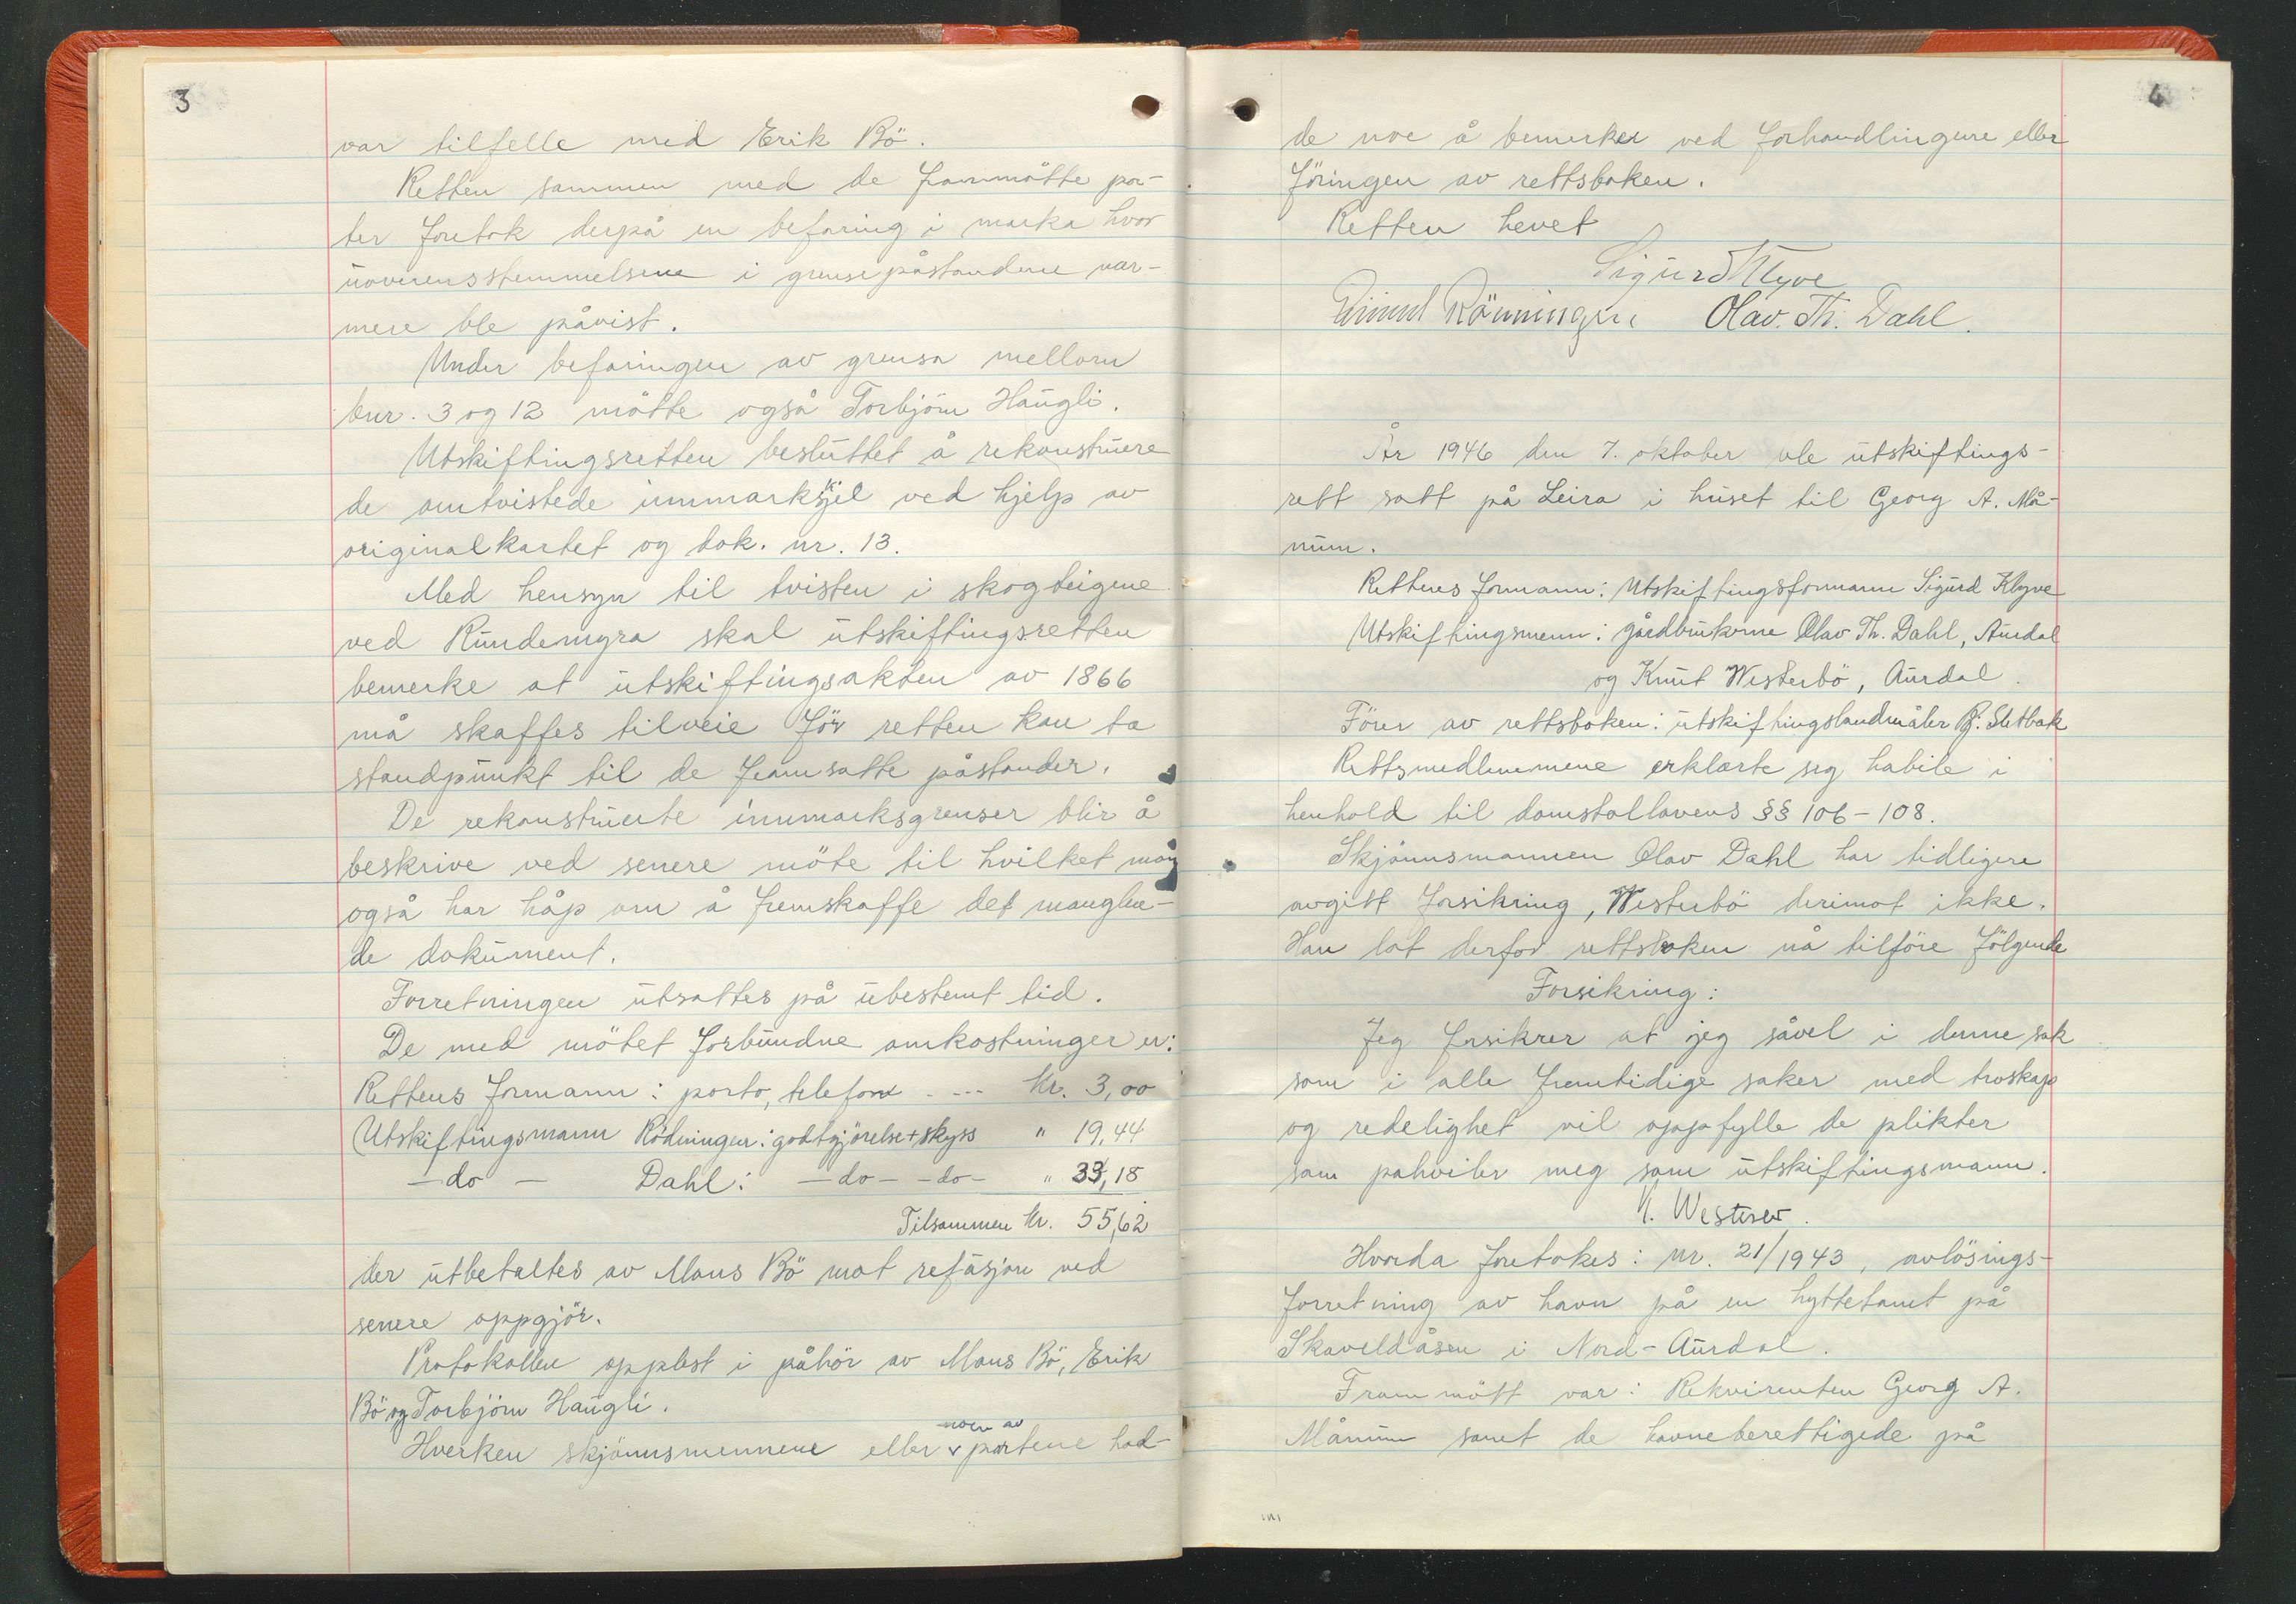 3
var tilfelle med Erik Bö.
Retten sammen med de frammötte par-
ter foretok derpå en befaring i marka hvor
uoverensstemmelsene i grensepåstandene nær-
mere ble påvist.
Under befaringen av grensa mellom
bnr. 3 og 12 mötte også Torbjörn Haugli.
Utskiftingsretten besluttet å rekonstruere
de omtvistede innmarkskjel ved hjelp av
originalkartet og dok. nr. 13.
Med hensyn til tvisten i skogteigene
ved Rundemyra skal utskiftingsretten
bemerke at utskiftingsakten av 1866
må skaffes tilveie för retten kan ta
standpunkt til de framsatte påstander.
De rekonstruerte innmarksgrenser blir å
beskrive ved senere möte til hvilket man
også har håp om å fremskaffe det manglen-
de dokument.
Forretningen utsattes på ubestemt tid.
De med mötet forbundne omkostninger er:
Rettens formann: porto, telefon - --- Kr. 3,00
Utskiftingsmann Rödningen: godtgjörelse + skyss " 19,44
- do - Dahl: - do - - do - " 33,18
Tilsammen kr. 55,62
der utbetaltes av Mons Bö mot refusjon ved
senere oppgjör.
Protokollen opplest i påhör av Mons Bö, Erik
Bö og Torbjörn Haugli.
Hverken skjönnsmennene eller noen av partene had-
4
de noe å bemerke ved forhandlingene eller
föringen av rettsboken.
Retten hevet
Sigurd Klyve
Rönningen Olav. Th. Dahl.
År 1946 den 7. oktober ble utskiftings-
rett satt på Leira i huset til Georg A. Må-
num.
Rettens formann: Utskiftingsformann Sigurd Klyve
Utskiftingsmenn: gårdbrukerne Olav Th. Dahl, Aurdal
og Knut Westerbö, Aurdal.
Förer av rettsboken: utskiftingslandmåler Bj. Sletbak
Rettsmedlemmene erklærte seg habile i
henhold til domstollovens §§ 106-108.
Skjönnsmannen Olav Dahl har tidligere
avgitt forsikring, Westerbö derimot ikke.
Han lot derfor rettsboken nå tilföre fölgende
Forsikring:
Jeg forsikrer at jeg såvel i denne sak
som i alle fremtidige saker med troskap
og redelighet vil oppfylle de plikter
som påhviler meg som utskiftingsmann.
K.
Hvorda foretokes: nr. 21/1943, avlösings-
forretning av havn på en hyttetomt på
Skaveldåsen i Nord-Aurdal.
Frammött var: Rekvirenten Georg A.
Månum samt de havneberettigede på